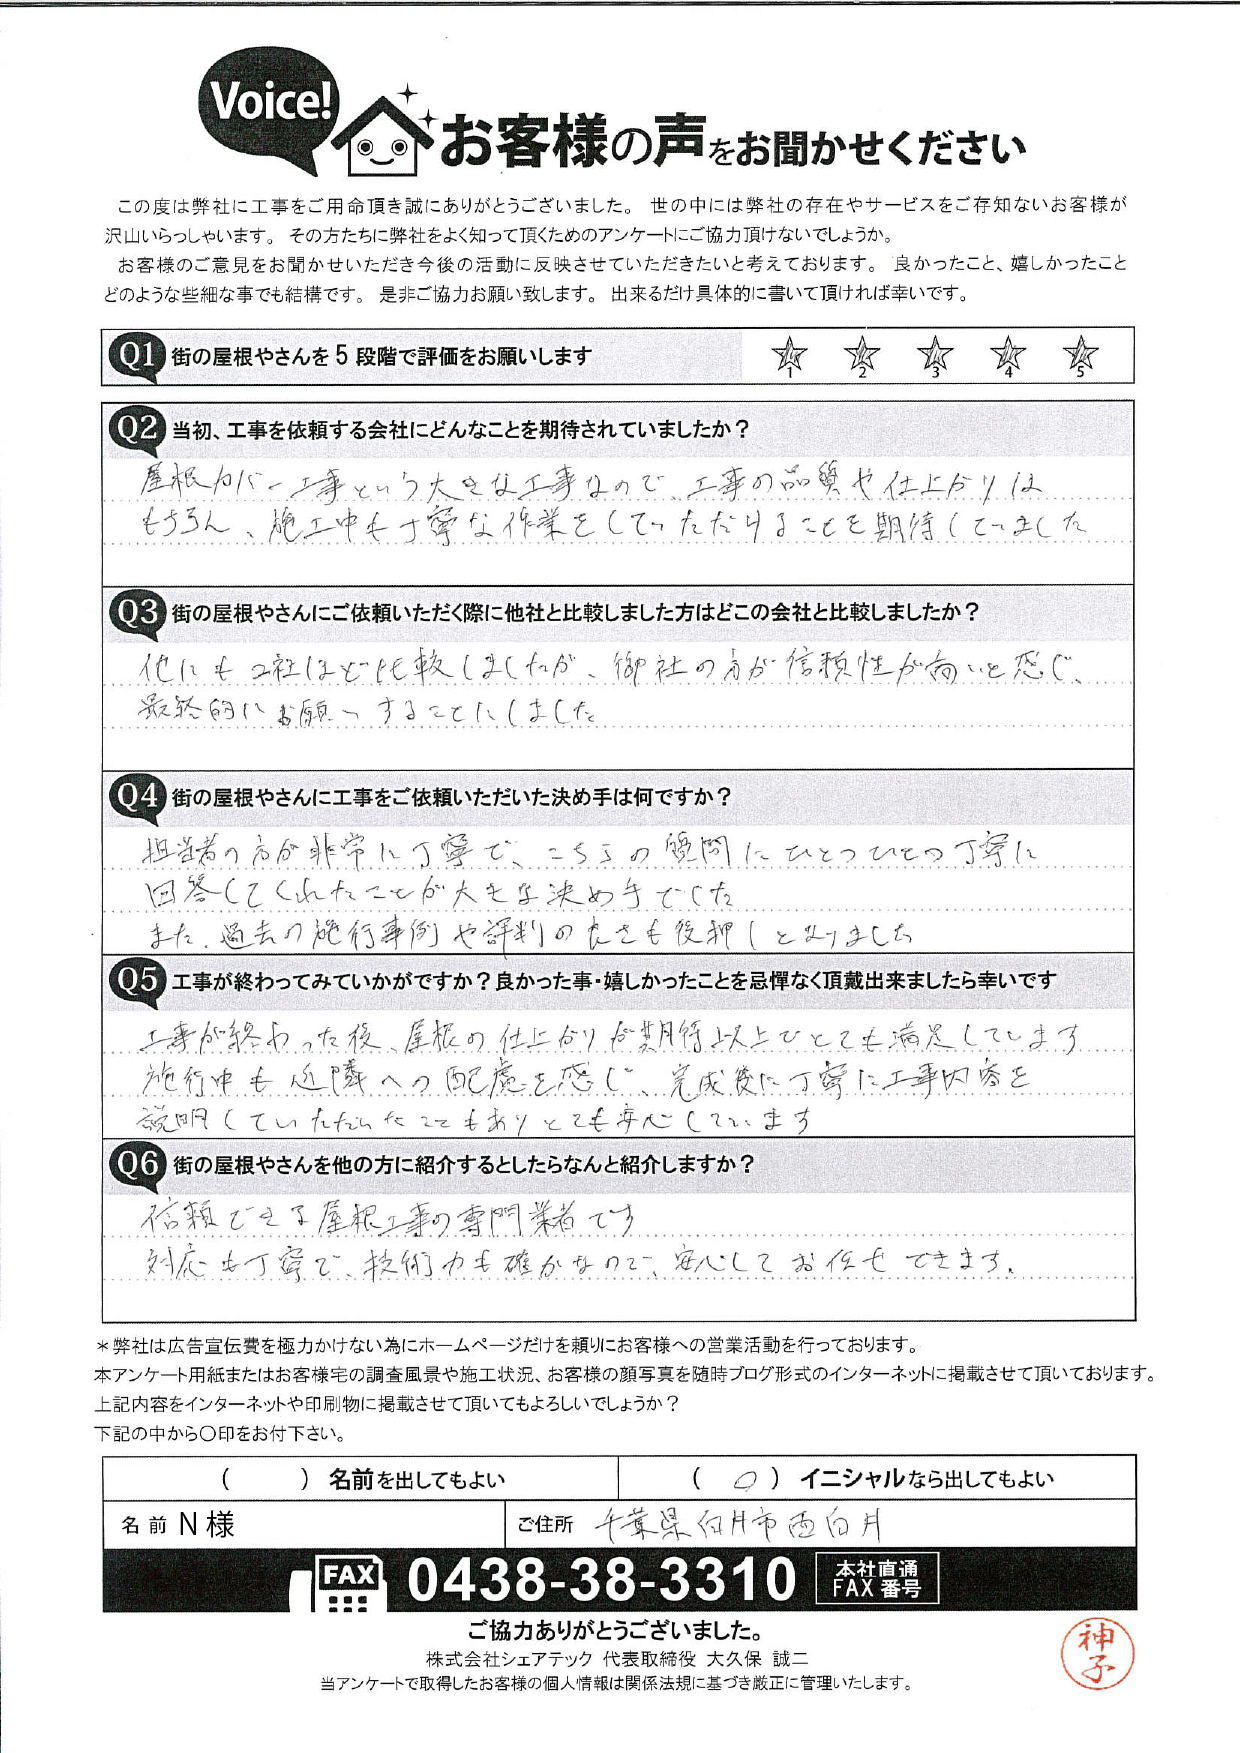 Voice!
お客様の声をお聞かせください
この度は弊社に工事をご用命頂き誠にありがとうございました。 世の中には弊社の存在やサービスをご存知ないお客様が
沢山いらっしゃいます。 その方たちに弊社をよく知って頂くためのアンケートにご協力頂けないでしょうか。
お客様のご意見をお聞かせいただき今後の活動に反映させていただきたいと考えております。 良かったこと、嬉しかったこと
どのような些細な事でも結構です。 是非ご協力お願い致します。 出来るだけ具体的に書いて頂ければ幸いです。
Q1 街の屋根やさんを5段階で評価をお願いします 1 2 3 4 5
Q2 当初、工事を依頼する会社にどんなことを期待されていましたか?
屋根カバー工事という大きな工事なので、工事の品質や仕上がりは
もちろん、施工中も丁寧な作業をしていただけることを期待していました
Q3 街の屋根やさんにご依頼いただく際に他社と比較しました方はどこの会社と比較しましたか?
他にも2社ほど比較しましたが、御社の方が信頼性が高いと感じ、
最終的にお願いすることにしました
Q4 街の屋根やさんに工事をご依頼いただいた決め手は何ですか?
担当者の方が非常に丁寧で、こちらの質問にひとつひとつ丁寧に
回答してくれたことが大きな決め手でした
また、過去の施行事例や評判の良さも後押しとなりました
Q5 工事が終わってみていかがですか?良かった事・嬉しかったことを忌憚なく頂戴出来ましたら幸いです
工事が終わった後、屋根の仕上がりが期待以上でとても満足しています
施行中も近隣への配慮を感じ、完成後に丁寧に工事内容を
説明していただいたこともありとても安心しています
Q6 街の屋根やさんを他の方に紹介するとしたらなんと紹介しますか?
信頼できる屋根工事の専門業者です
対応も丁寧で、技術力も確かなので、安心してお任せできます。
＊弊社は広告宣伝費を極力かけない為にホームページだけを頼りにお客様への営業活動を行っております。
本アンケート用紙またはお客様宅の調査風景や施工状況、お客様の顔写真を随時ブログ形式のインターネットに掲載させて頂いております。
上記内容をインターネットや印刷物に掲載させて頂いてもよろしいでしょうか?
下記の中から○印をお付下さい。
( ) 名前を出してもよい ( ○ ) イニシャルなら出してもよい
名前 N様 ご住所 千葉県白井市西白井
FAX 0438-38-3310 本社直通 FAX番号
ご協力ありがとうございました。
株式会社シェアテック 代表取締役 大久保 誠二
当アンケートで取得したお客様の個人情報は関係法規に基づき厳正に管理いたします。
神子